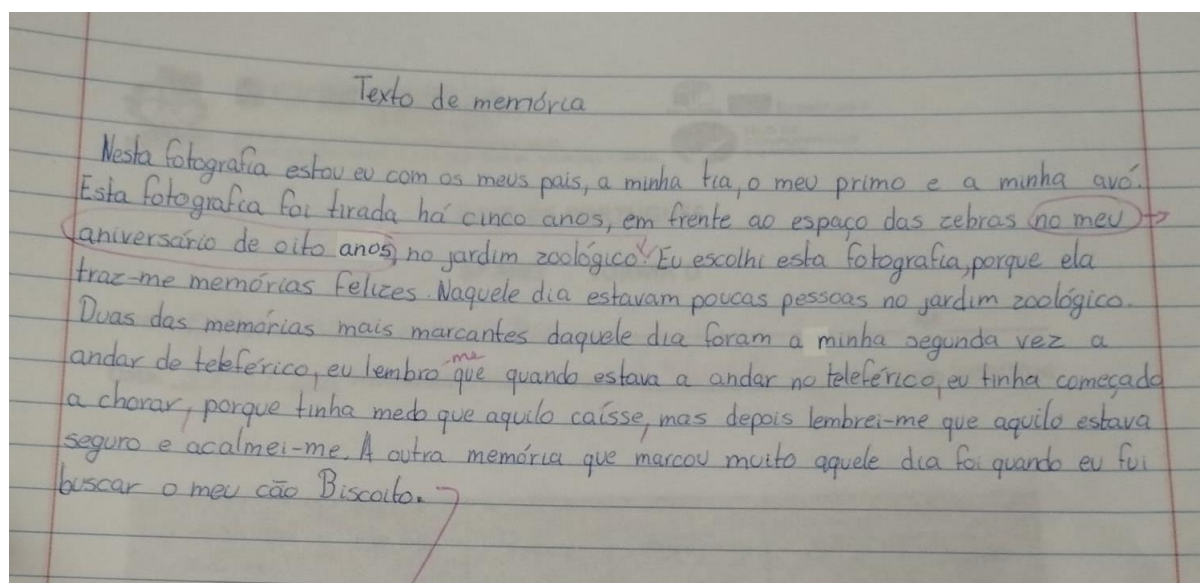 Texto de memória
Nesta fotografia estou eu com os meus pais, a minha tia, o meu primo e a minha avó.
Esta fotografia foi tirada há cinco anos, em frente ao espaço das zebras no meu
aniversário de oito anos, no jardim zoológico. Eu escolhi esta fotografia, porque ela
traz-me memórias felizes. Naquele dia estavam poucas pessoas no jardim zoológico.
Duas das memórias mais marcantes daquele dia foram a minha segunda vez a
me
andar de teleférico, eu lembro que quando estava a andar no teleférico, eu tinha começado
a chorar, porque tinha medo que aquilo caísse, mas depois lembrei-me que aquilo estava
seguro e acalmei-me. A outra memória que marcou muito aquele dia foi quando eu fui
buscar o meu cão Biscoito.